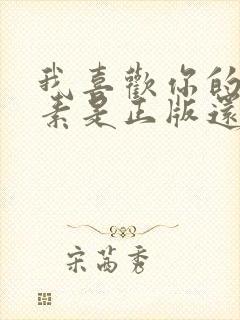 我喜歡你的
素是正版還
宋茜秀